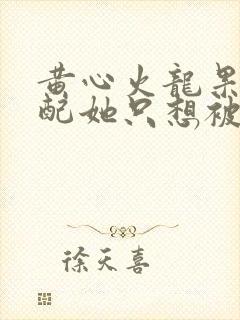 黄心火龙果
配她只想被
徐天喜